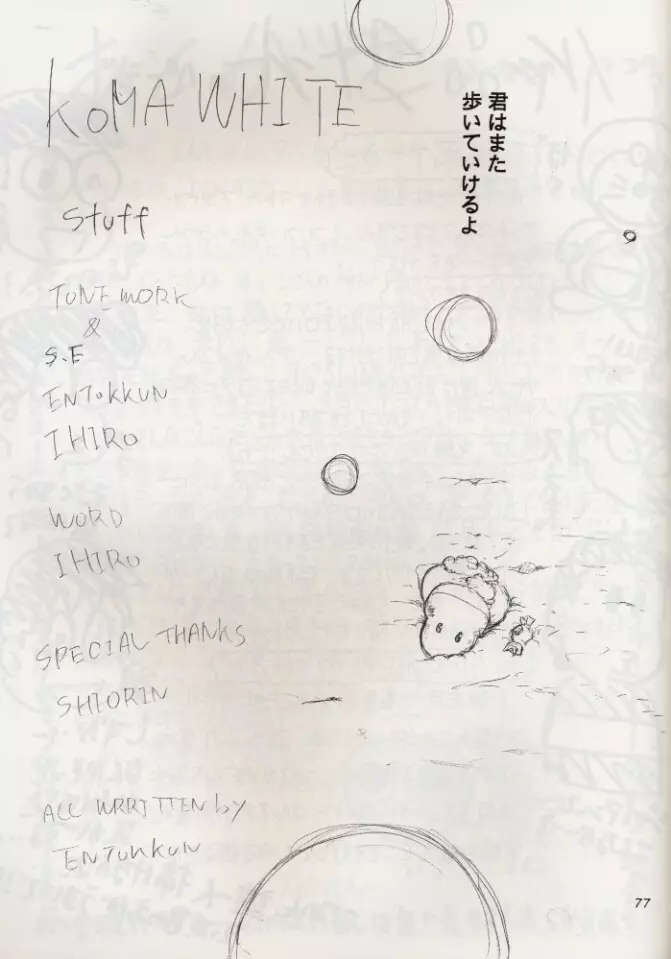 KOMA WHITE
君はまた
歩いていけるよ
Stuff
TONE WORK
&
S.E
ENTOKKUN
IHIRO
WORD
IHIRO
SPECIAL THANKS
SHIORIN
ALL WRRITTEN by
77